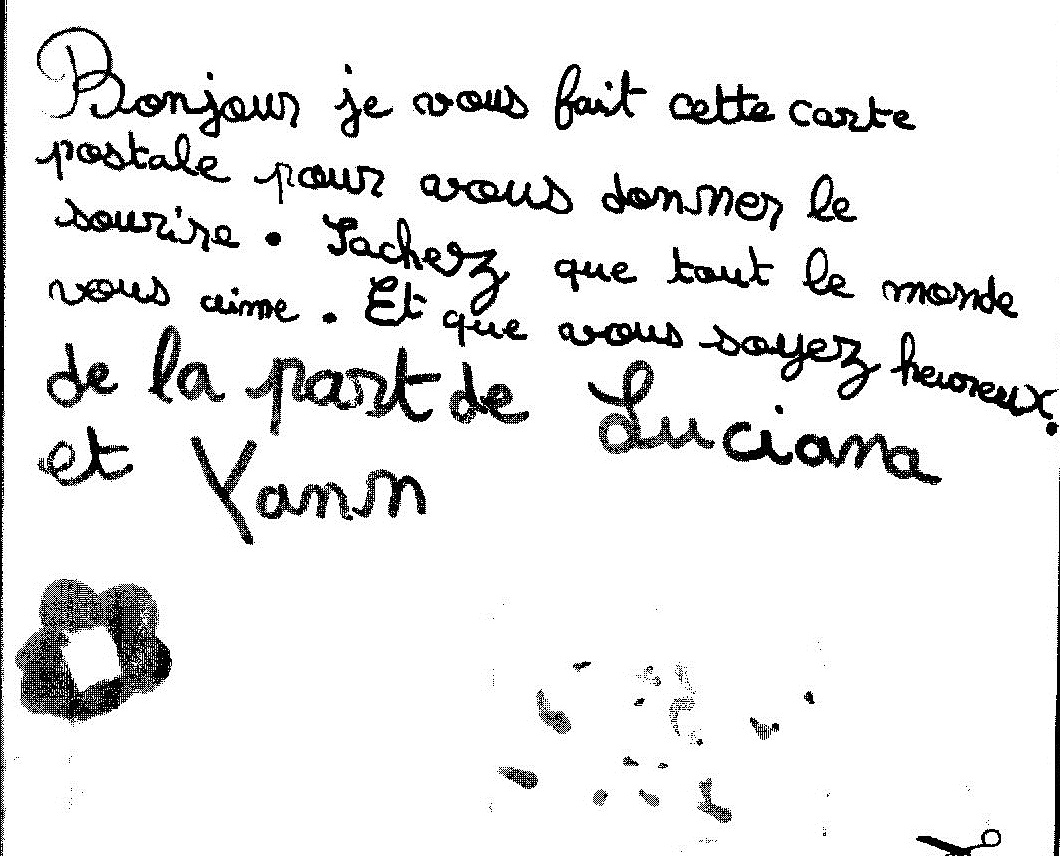 Bonjour je vous fait cette carte
postale pour vous donner le
sourire. Sachez que tout le monde
vous aime. Et que vous soyez heureux.
de la part de Luciana
et Yann